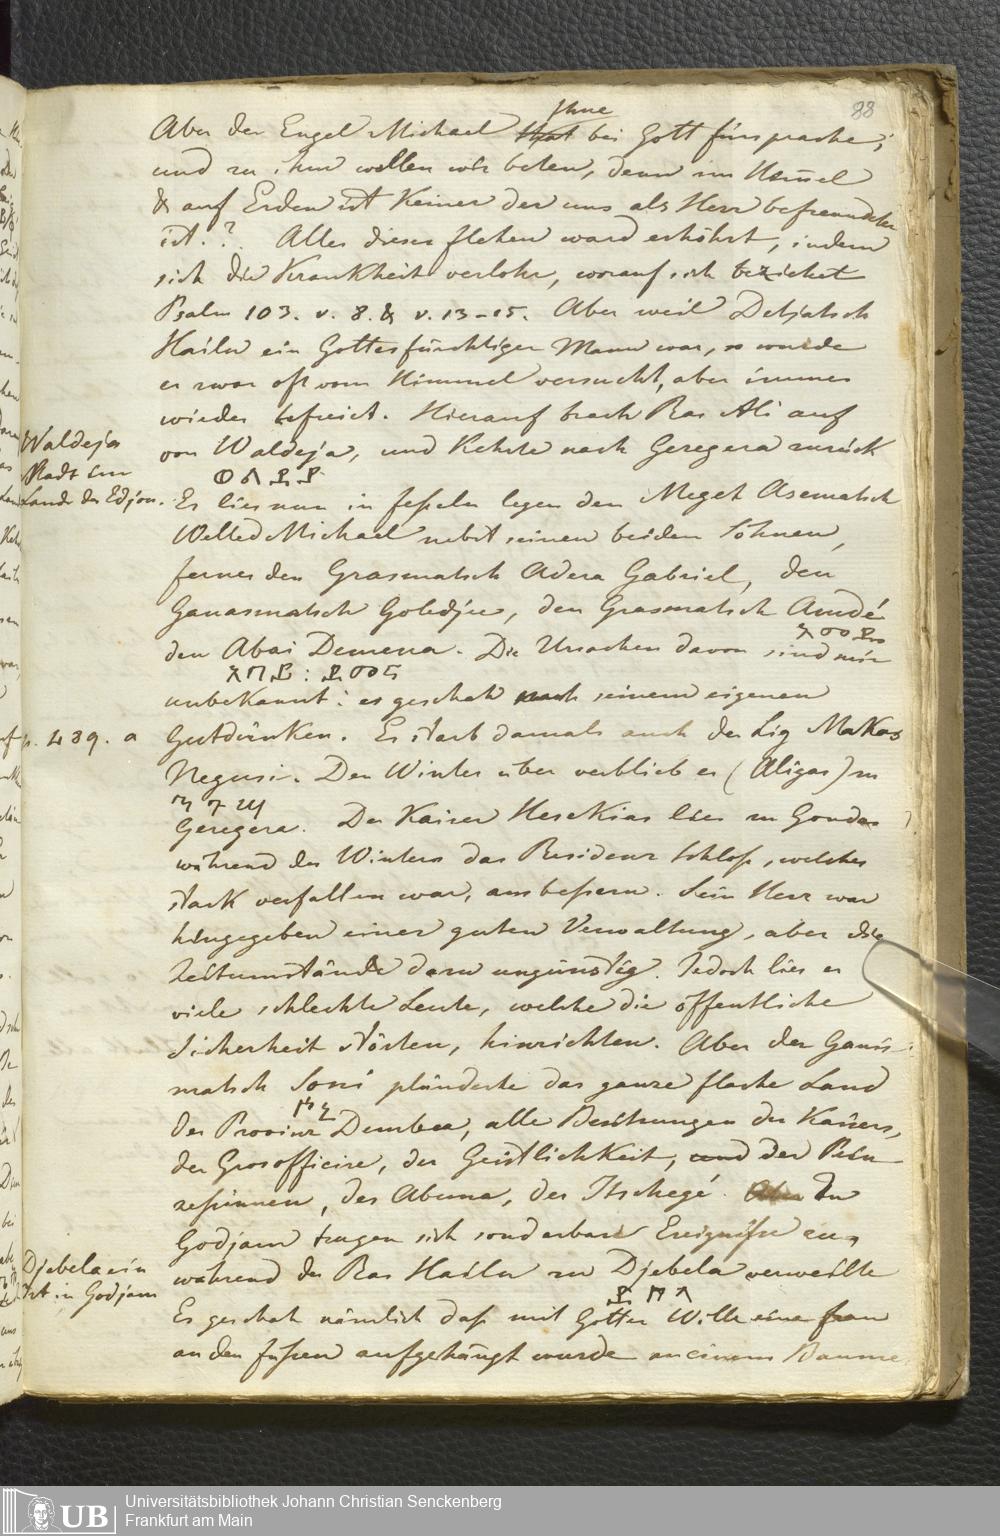 88
Ihne
Aber der Engel Michael that bei Gott fürsprache;
und zu ihm wollen wir beten, denn im Himel
& auf Erden ist Keiner der uns als Herr befreundeter
ist.? Alles dieses flehen ward erhöhrt, indem
sich die Krankheit verlohr, worauf sich beziehet
Psalm 103. v. 8. & v. 13-15. Aber weil Detjatsch
Hailu ein Gottesfürchtiger Mann war, so wurde
er zwar oft vom Himmel versucht, aber immer
wieder befreiet. Hierauf brach Ras Ali auf
von Waldeja, und Kehrte nach Geregera zurück
Waldeja
Stadt im
Lande der Edjou.
Er lies nun in feßeln legen den Meget Asematsch
Welled Michael nebst seinen beiden Söhnen,
ferner den Grasmatsch Adera Gabriel, den
Ganasmatsch Goledjie, den Grasmatsch Amdé
den Abai Demena. Die Ursachen davon sind mir
unbekannt: es geschah nach seinem eigenen
p. 439. a
Gutdünken. Es starb damals auch der Lig Makas
Negusi. Den Winter über verblieb er (Aligas) zu
Geregera. Der Kaiser HesKias lies zu Gondar
während des Winters das Residenz Schloß, welches
stark verfallen war, ausbeßern. Sein Herz war
hingegeben einer guten Verwaltung, aber die
Zeitumstände dazu ungünstig. Jedoch lies er
viele schlechte Leute, welche die öffentliche
Sicherheit störten, hinrichten. Aber der Ganas
matsch Soni plünderte das ganze flache Land
der Provinz Dembea, alle Besitzungen des Kaisers,
der Grosofficire, der GeistlichKeit, und der Prin
zeßinnen, des Abuna, des Itschegé. Aber In
Godjam trugen sich sonderbare Ereigniße zu,
während der Ras Hailu zu Djebela verweilte
Djebela ein
Ort in Godjam
Es geschah nämlich daß mit Gottes Wille eine frau
an den füßen aufgehängt wurde an einem Baume
Universitätsbibliothek Johann Christian Senckenberg
Frankfurt am Main
UB